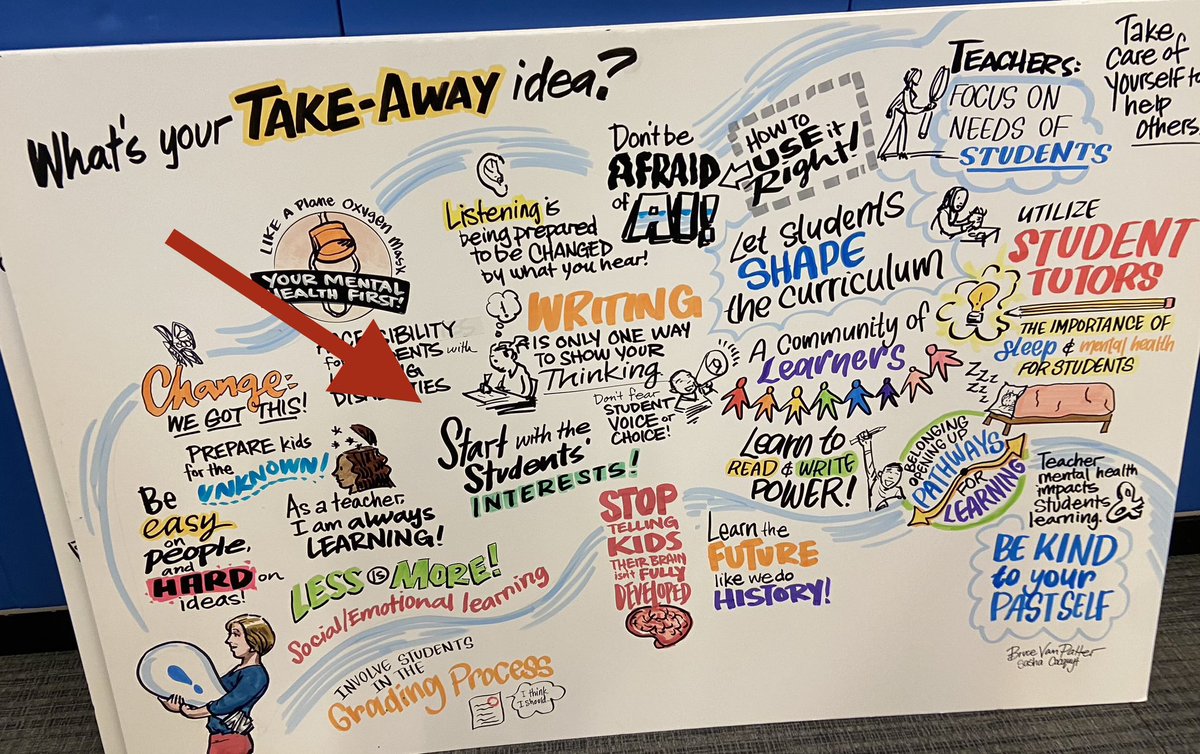 What's your TAKE-AWAY idea?
LIKE A PLANE OXYGEN MASK
YOUR MENTAL
HEALTH FIRST!
Listening is
being prepared
to be CHANGED
by what you hear!
Don't be
AFRAID
of
AI!
HOW TO
USE it
Right!
TEACHERS:
FOCUS ON
NEEDS OF
STUDENTS
Take
care of
yourself to
help
others.
Let students
SHAPE
the curriculum
UTILIZE
STUDENT
TUTORS
THE IMPORTANCE OF
Sleep & mental health
FOR STUDENTS
Zzzz
Change:
WE GOT THIS!
with
WRITING
IS ONLY ONE WAY
TO SHOW YOUR
Thinking
Don't fear
STUDENT
VOICE or
CHOICE!
A Community of
Learners
PREPARE kids
for the
UNKNOWN!
Start with the
Students'
INTERESTS!
Learn to
READ & WRITE
POWER!
BELONGING
OPENING UP
PATHWAYS
FOR
LEARNING
Teacher
mental health
impacts
Students
learning.
Be
easy
on
people,
and
HARD on
ideas!
As a teacher,
I am always
LEARNING!
STOP
TELLING
KIDS
THEIR BRAIN
isn't FULLY
DEVELOPED
Learn the
FUTURE
like we do
HISTORY!
BE KIND
to your
PAST SELF
LESS is MORE!
Social/Emotional learning
INVOLVE STUDENTS
IN THE
Grading Process
I think
I should
Bruce Van Patter